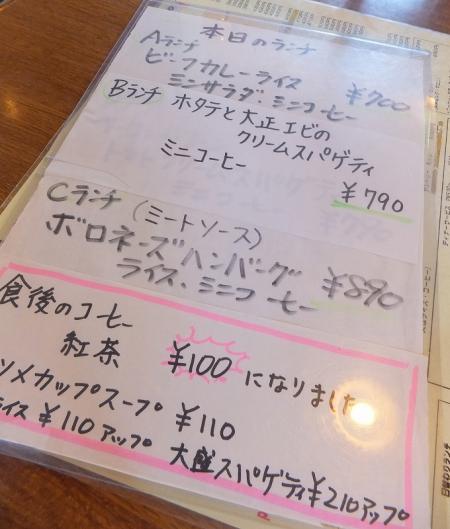 本日のランチ
Aランチ
ビーフカレーライス
ミンサラダ、ミニコーヒー ¥700
Bランチ ホタテと大正エビの
クリームスパゲティ
ミニコーヒー
¥790
Cランチ (ミートソース)
ボロネーズハンバーグ
ライス、ミニコーヒー ¥890
食後のコーヒー
紅茶 ¥100になりました
ソメカップスープ ¥110
ライス ¥110アップ 大盛スパゲティ¥210アップ